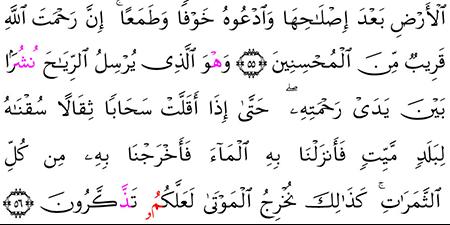 ٱلْأَرْضِ بَعْدَ إِصْلَٰحِهَا وَٱدْعُوهُ خَوْفًا وَطَمَعًا ۚ إِنَّ رَحْمَتَ ٱللَّهِ
قَرِيبٌ مِّنَ ٱلْمُحْسِنِينَ ۝٥٥ وَهْوَ ٱلَّذِى يُرْسِلُ ٱلرِّيَٰحَ نُشُرًۢا
بَيْنَ يَدَىْ رَحْمَتِهِۦ ۖ حَتَّىٰ إِذَا أَقَلَّتْ سَحَابًا ثِقَالًا سُقْنَٰهُ
لِبَلَدٍ مَّيِّتٍ فَأَنزَلْنَا بِهِ ٱلْمَآءَ فَأَخْرَجْنَا بِهِۦ مِن كُلِّ
ٱلثَّمَرَٰتِ ۚ كَذَٰلِكَ نُخْرِجُ ٱلْمَوْتَىٰ لَعَلَّكُمُۥ تَذَّكَّرُونَ ۝٥٦